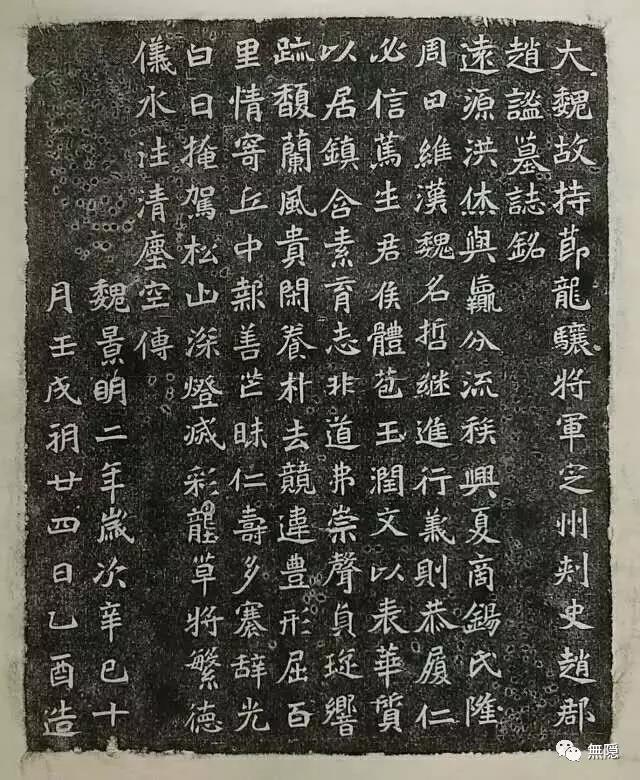 大魏故持莭龍驤將軍㝎州刾史趙郡
趙謐墓誌銘
遠源洪休與蠃分流祑興夏商錫氏隆
周曰維漢魏名哲継進行義則恭履仁
必信篤生君侯體苞玉潤文以表華質
以居鎮含素育志非道弗崇聲貞琁響
跡馥蘭風貴閑養朴去競違豊形屈百
里情寄丘中報善芒昧仁壽多褰辞光
白日掩駕松山深燈滅彩壠草將繁德
儀永注清塵空傳
魏景明二年歲次辛巳十
月壬戌朔廿四日乙酉造
無隱